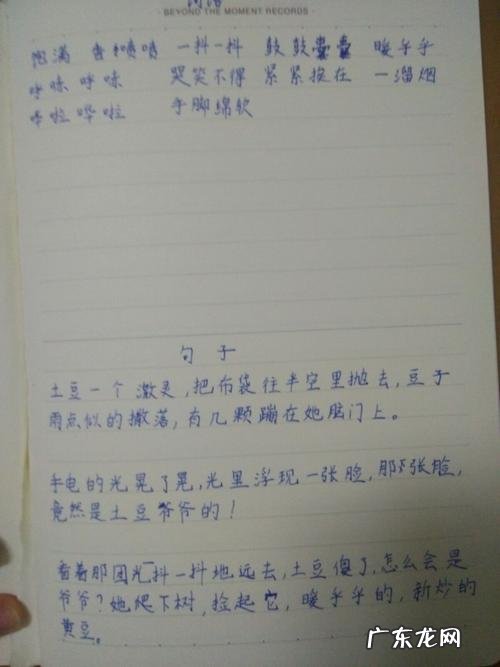 词语
BEYOND THE MOMENT RECORDS
饱满 香喷喷 一抖一抖 鼓鼓囊囊 暖乎乎
呼哧呼哧 哭笑不得 紧紧挨在 一溜烟
哗啦哗啦 手脚绵软
句子
土豆一个激灵,把布袋往半空里抛去,豆子
雨点似的撒落,有几颗蹦在她脑门上。
手电的光晃了晃,光里浮现一张脸,那张脸,
竟然是土豆爷爷的!
看着那团光抖一抖地远去,土豆傻了,怎么会是
爷爷?她爬下树,捡起它,暖乎乎的,新炒的
黄豆。
广东龙网